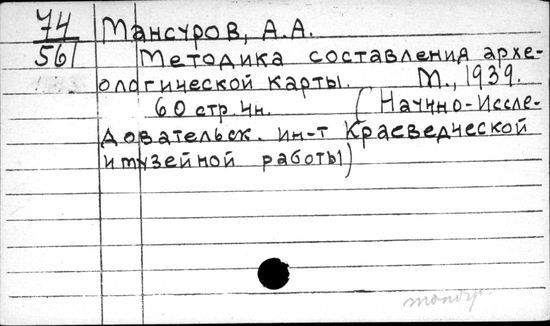 74 Мансуров, А.А.
561 Методика составления архе-
ологической карты. М., 1939.
60 стр. чн. (Научно-Иссле-
довательск. ин-т Краеведческой
и музейной работы)